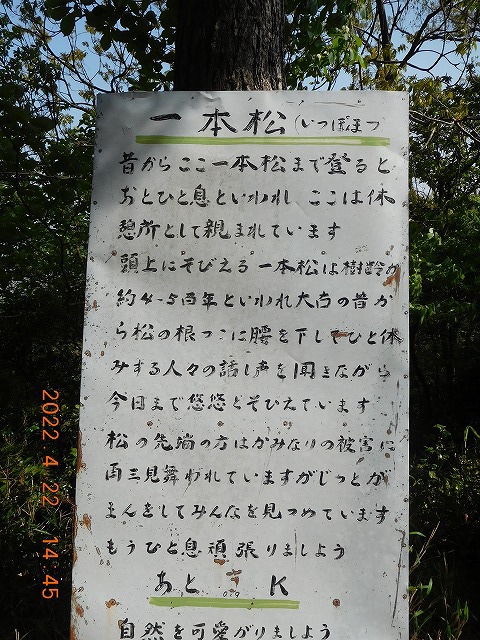 一本松(いっぽまつ
昔からここ一本松まで登ると
あとひと息といわれ ここは休
憩所として親まれています
頭上にそびえる一本松は樹齢が
約4-5百年といわれ大古の昔か
ら松の根っこに腰を下してひと休
みする人々の話し声を聞きながら
今日まで悠悠とそびえています
松の先端の方はかみなりの被害に
再三見舞われていますがじっとが
まんをしてみんなを見つめています
もうひと息頑張りましよう
あと K
自然を可愛がりましよう
2022 4 22 14:45